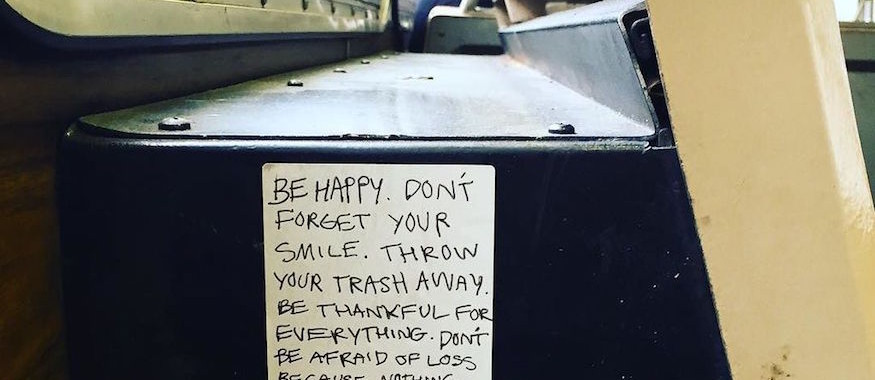 BE HAPPY. DON'T
FORGET YOUR
SMILE. THROW
YOUR TRASH AWAY.
BE THANKFUL FOR
EVERYTHING. DON'T
BE AFRAID OF LOSS
BECAUSE NOTHING